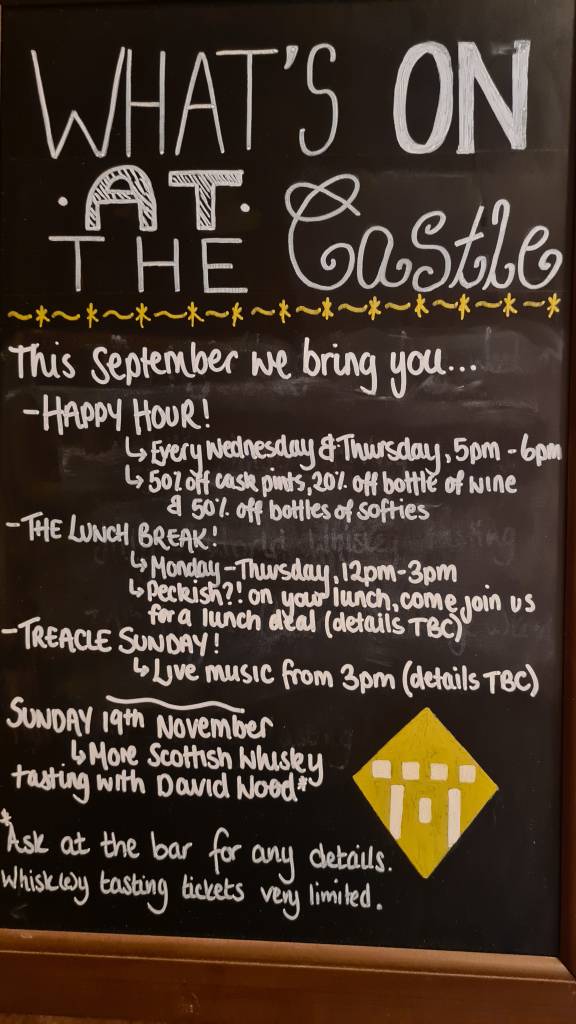 WHAT'S ON
·AT·
THE Castle
This September we bring you...
-HAPPY HOUR!
↳Every Wednesday & Thursday, 5pm-6pm
↳50% off cask pints, 20% off bottle of wine
& 50% off bottles of softies
-THE LUNCH BREAK!
↳Monday-Thursday, 12pm-3pm
↳Peckish?! on your lunch, come join us
for a lunch deal (details TBC)
-TREACLE SUNDAY!
↳Live music from 3pm (details TBC)
SUNDAY 19th November
↳More Scottish Whisky
tasting with David Wood*
*Ask at the bar for any details.
Whisk(e)y tasting tickets very limited.